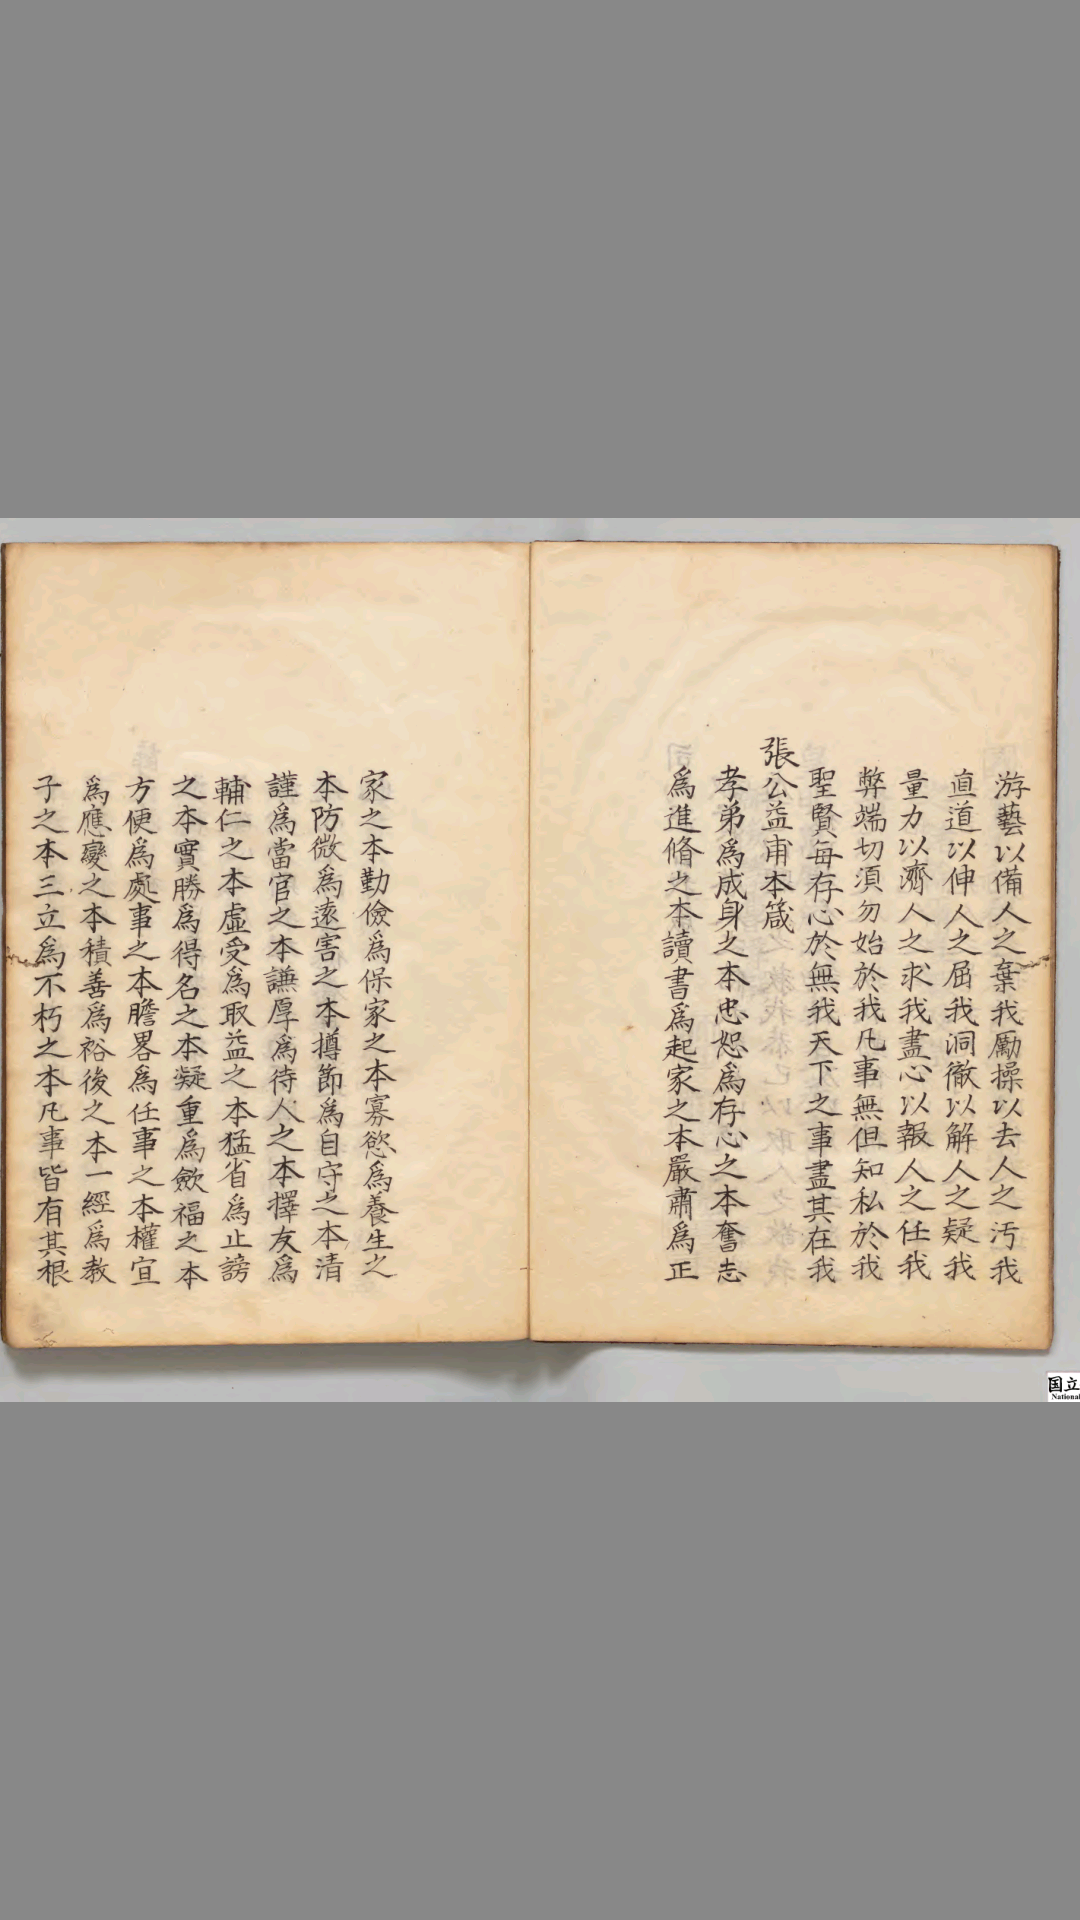 游藝以備人之棄我勵操以去人之汚我
直道以伸人之屈我洞徹以解人之疑我
量力以濟人之求我盡心以報人之任我
弊端切須勿始於我凡事無但知私於我
聖賢每存心於無我天下之事盡其在我
張公益甫本箴
孝弟為成身之本忠恕為存心之本奮志
為進脩之本讀書為起家之本嚴肅為正
家之本勤儉為保家之本寡慾為養生之
本防微為遠害之本撙節為自守之本清
謹為當官之本謙厚為待人之本擇友為
輔仁之本虛受為取益之本猛省為止謗
之本實勝為得名之本凝重為斂福之本
方便為處事之本膽畧為任事之本權宜
為應變之本積善為裕後之本一經為教
子之本三立為不朽之本凡事皆有其根
国立
National